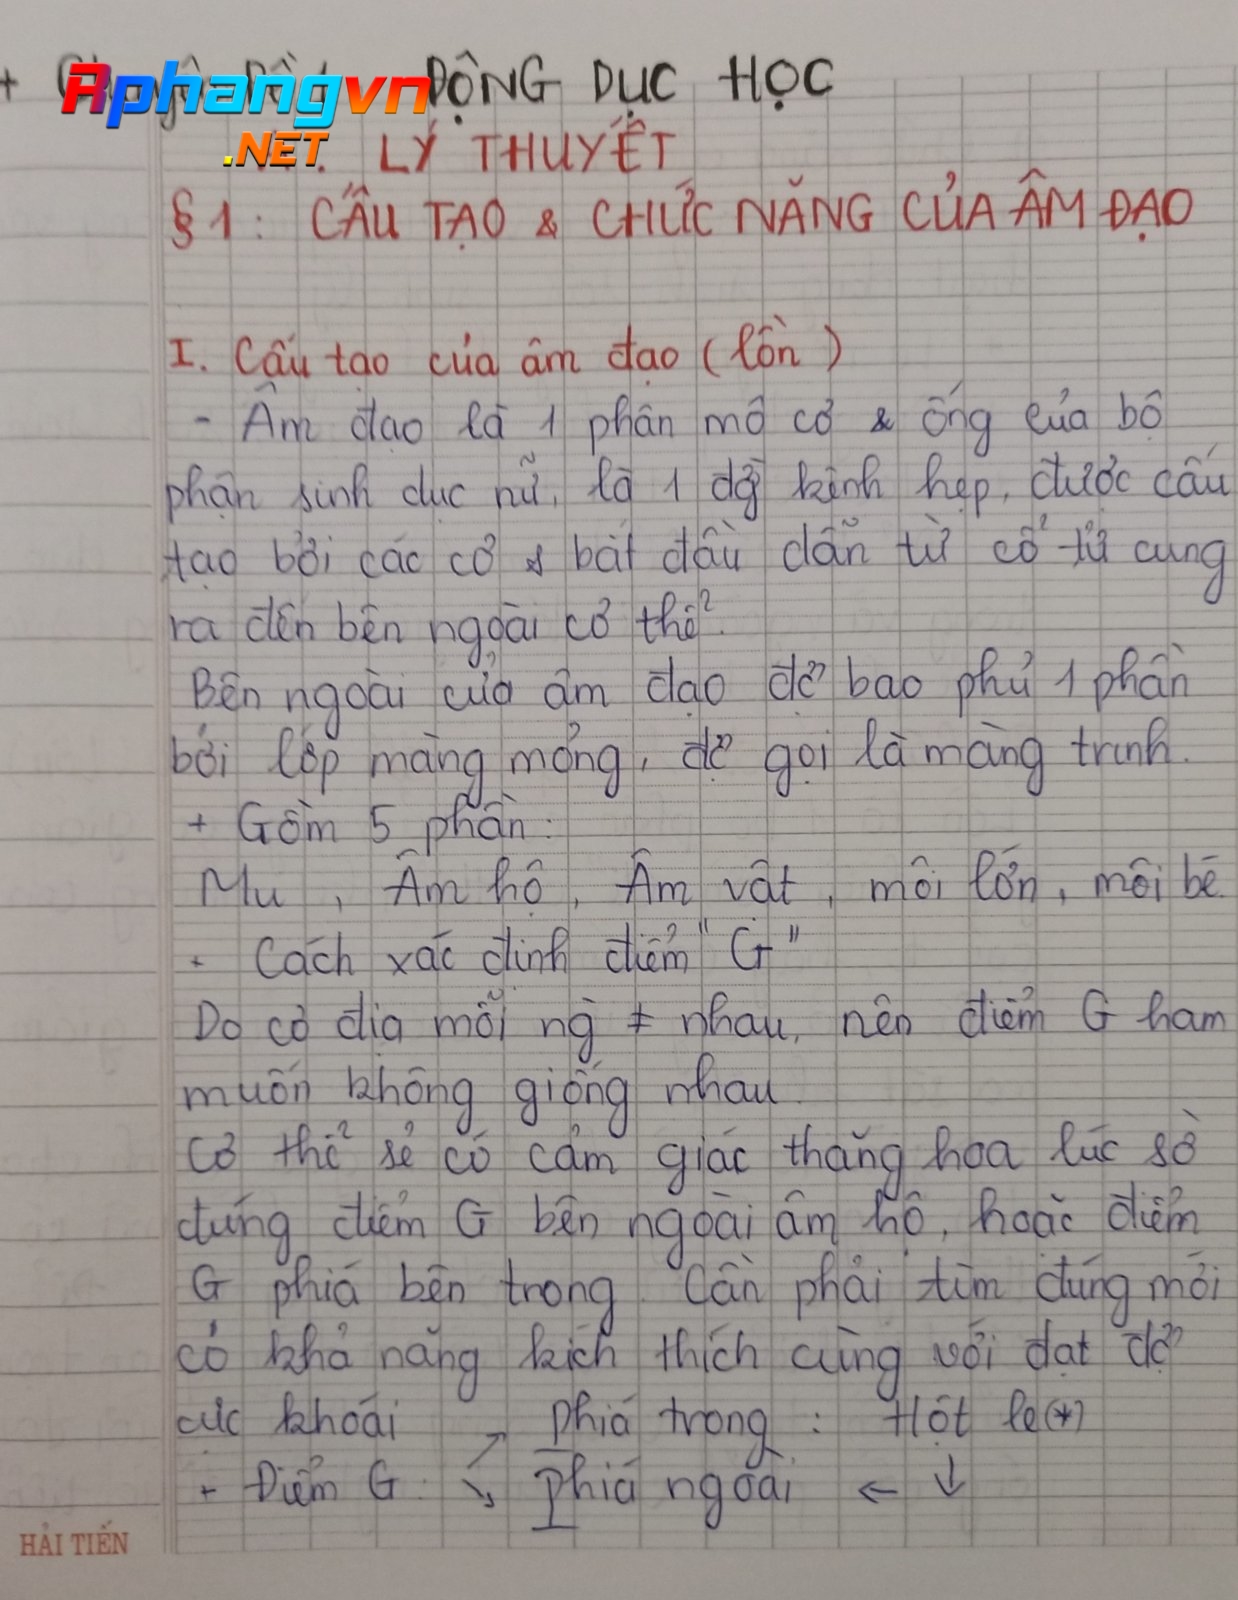 + ĐỘNG DỤC HỌC
Rphangvn
.NET
LÝ THUYẾT
§1: CẤU TẠO & CHỨC NĂNG CỦA ÂM ĐẠO
I. Cấu tạo của âm đạo (lồn)
- Âm đạo là 1 phần mô cơ & ống của bộ
phận sinh dục nữ, là 1 dg kênh hẹp, được cấu
tạo bởi các cơ & bắt đầu dẫn từ cổ tử cung
ra đến bên ngoài cơ thể.
Bên ngoài của âm đạo đc bao phủ 1 phần
bởi lớp màng mỏng, đc gọi là màng trinh.
+ Gồm 5 phần:
Mu, Âm hộ, Âm vật, môi lớn, môi bé
- Cách xác định điểm "G"
Do cơ địa mỗi ng ≠ nhau, nên điểm G ham
muốn không giống nhau.
Cơ thể sẽ có cảm giác thăng hoa lúc sờ
đúng điểm G bên ngoài âm hộ, hoặc điểm
G phía bên trong. Cần phải tìm đúng mới
có khả năng kích thích cùng với đạt đc
cực khoái
↗ Phía trong: Hột le(*)
+ Điểm G: ↘ Phía ngoài ← ↓
HẢI TIẾN